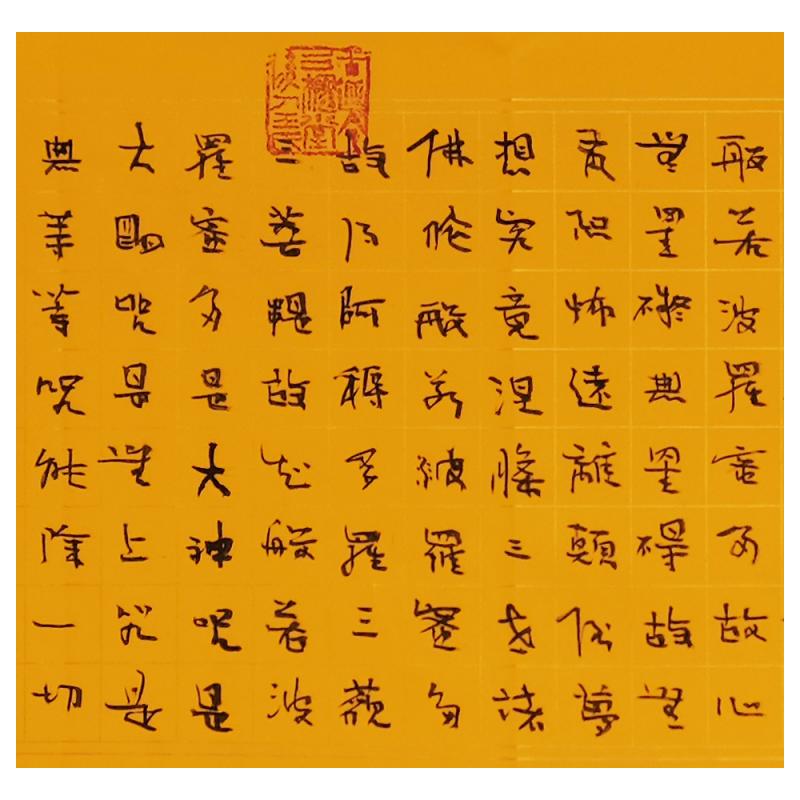 般若波羅蜜多故心
無罣礙無罣碍故無
有恐怖遠離顛倒夢
想究竟涅槃三世諸
佛依般若波羅蜜多
故得阿耨多羅三藐
三菩提故知般若波
羅蜜多是大神咒是
大明咒是無上咒是
無等等咒能除一切